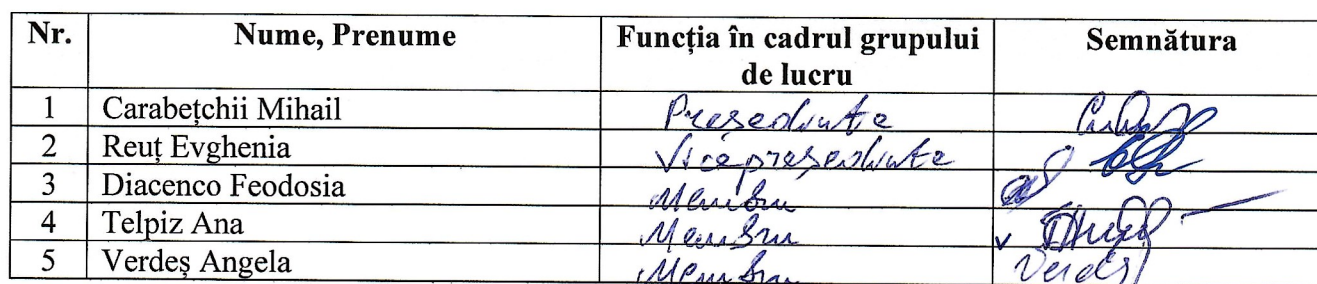 Nr. Nume, Prenume Funcția în cadrul grupului de lucru Semnătura
1 Carabețchii Mihail Președinte
2 Reuț Evghenia Vicepreședinte
3 Diacenco Feodosia Membru
4 Telpiz Ana Membru
5 Verdeș Angela Membru Verdeș